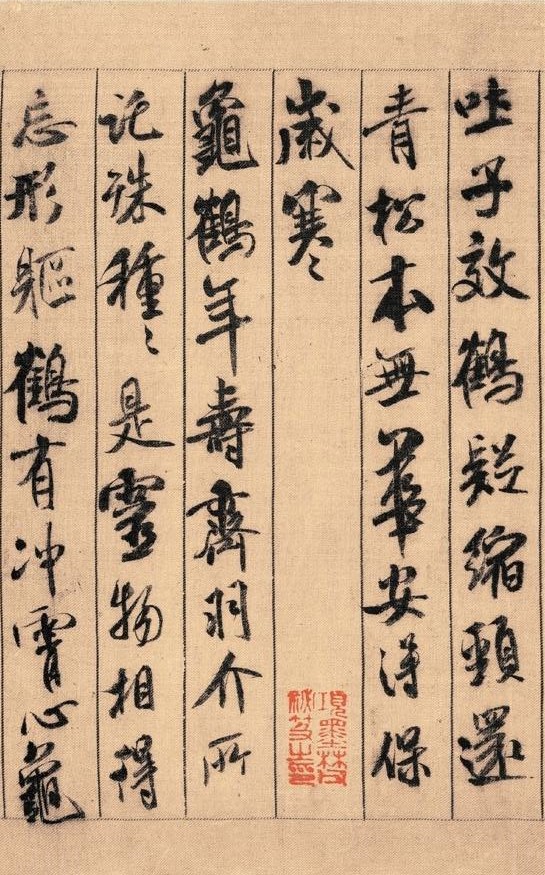 吐子效鶴疑縮頸還
青松本無華安得保
歲寒
龜鶴年壽齊羽介所
託殊種〻是靈物相得
忘形軀鶴有冲霄心龜
項墨林父
秘笈之印